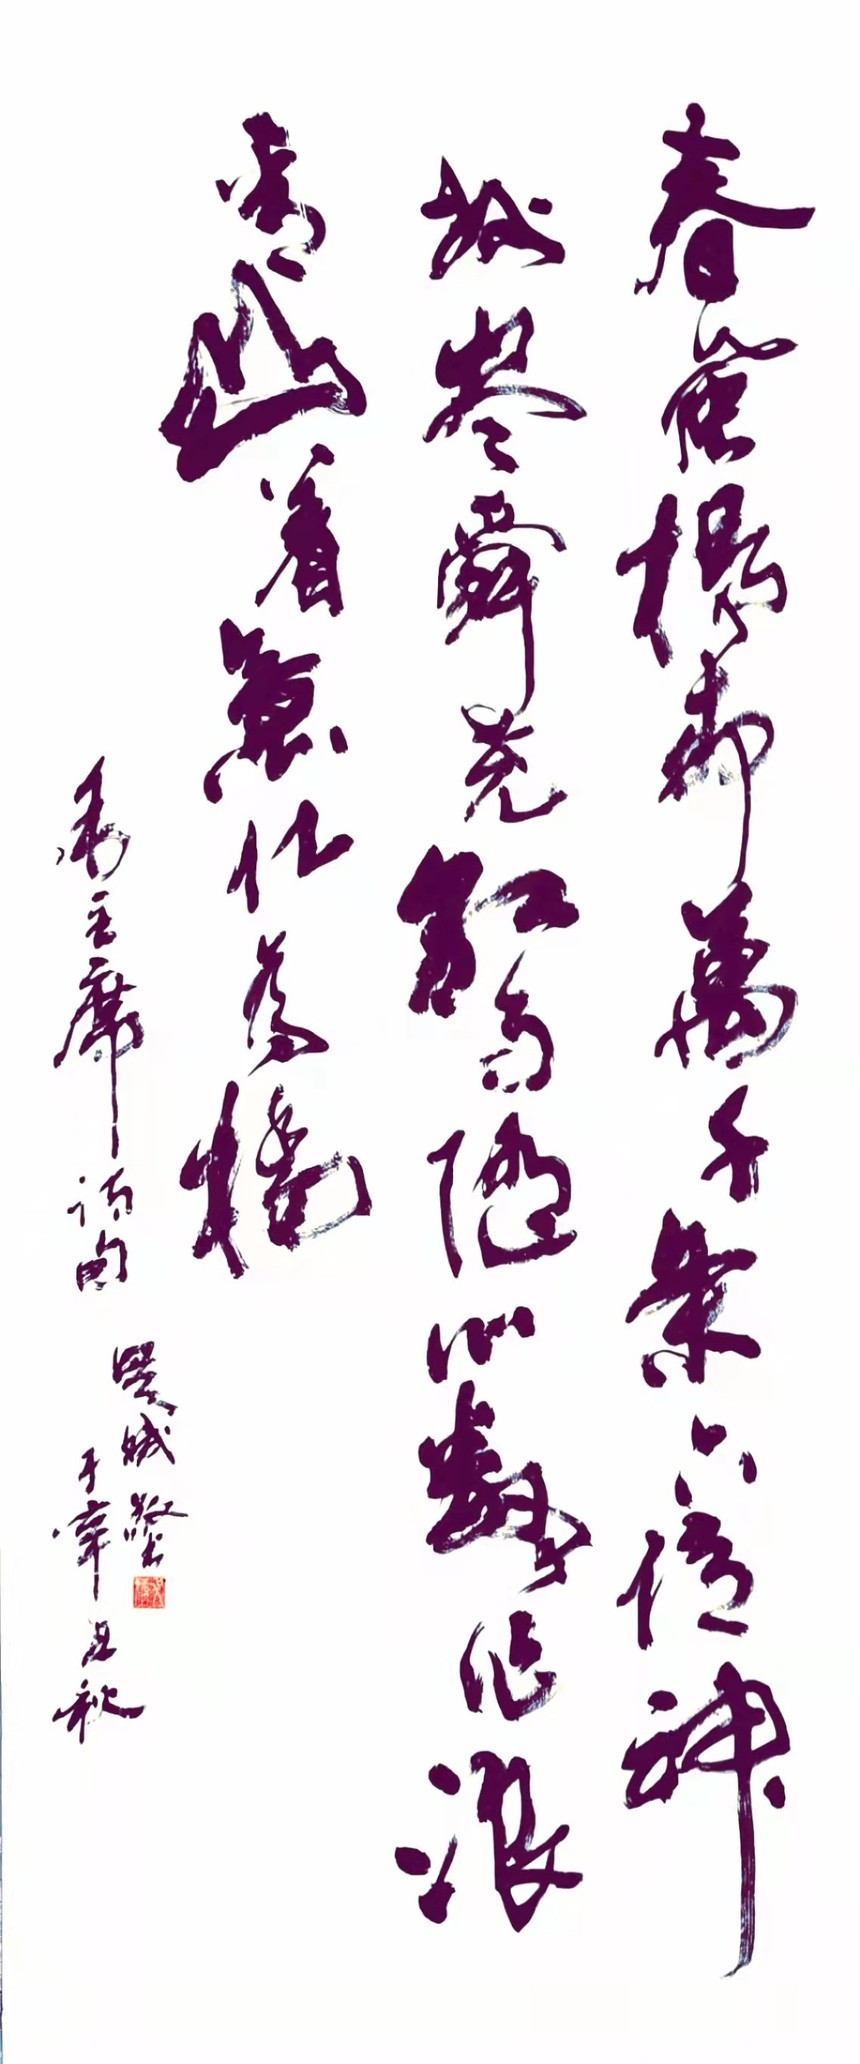 春風楊柳萬千条六億神
州尽舜尧紅雨隨心翻作浪
青山着意化為橋
毛主席詩句
于辛丑秋